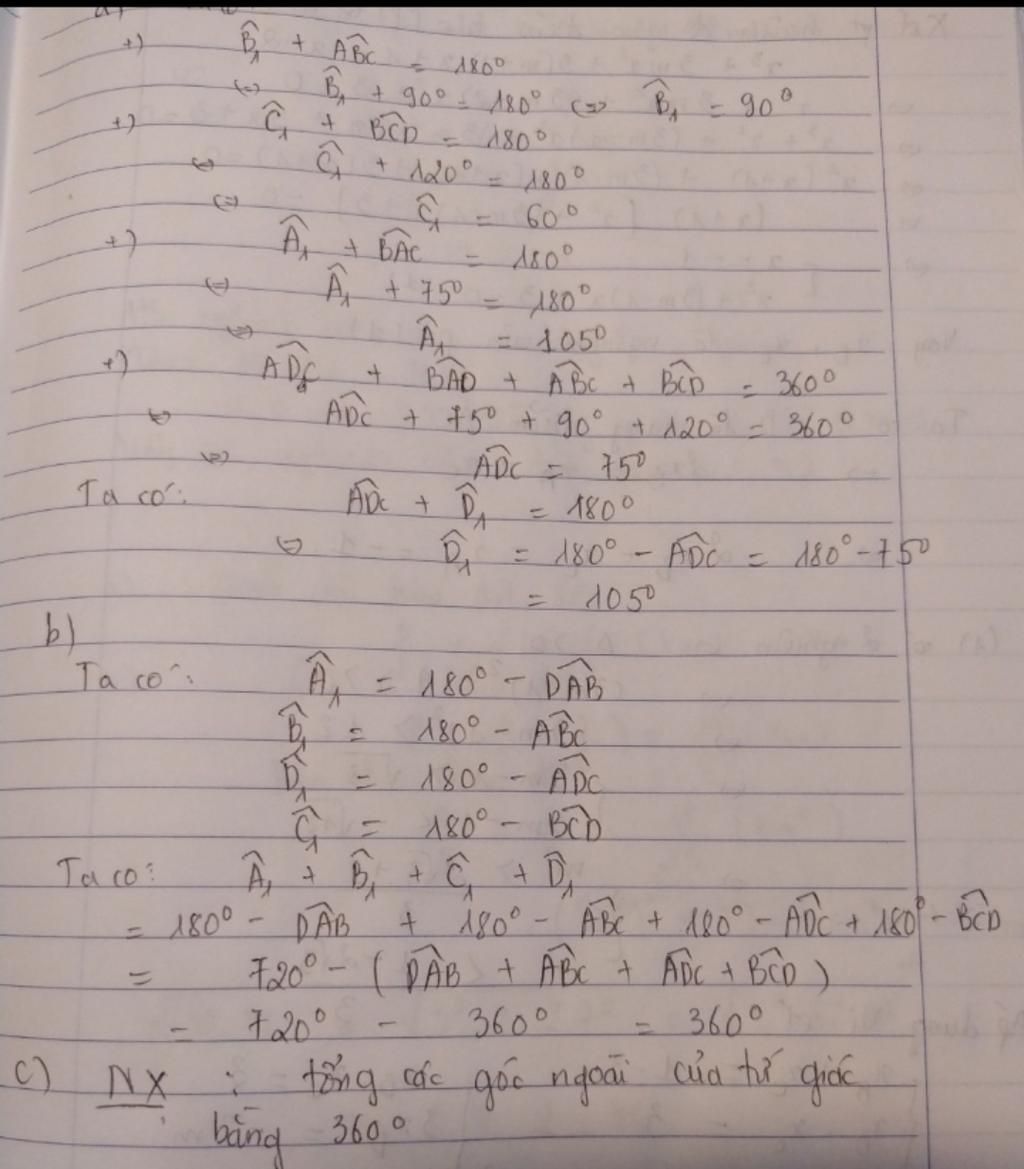 +) B̂₁ + AB̂C = 180°
(=) B̂₁ + 90° = 180° (=) B̂₁ = 90°
+) Ĉ₁ + BĈD = 180°
(=) Ĉ₁ + 120° = 180°
(=) Ĉ₁ = 60°
+) Â₁ + BÂC = 180°
(=) Â₁ + 75° = 180°
(=) Â₁ = 105°
+) AD̂C + BÂD + AB̂C + BĈD = 360°
(=) AD̂C + 75° + 90° + 120° = 360°
(=) AD̂C = 75°
Ta có: AD̂C + D̂₁ = 180°
(=) D̂₁ = 180° - AD̂C = 180° - 75°
= 105°
b)
Ta có: Â₁ = 180° - DÂB
B̂₁ = 180° - AB̂C
D̂₁ = 180° - AD̂C
Ĉ₁ = 180° - BĈD
Ta có: Â₁ + B̂₁ + Ĉ₁ + D̂₁
= 180° - DÂB + 180° - AB̂C + 180° - AD̂C + 180° - BĈD
= 720° - (DÂB + AB̂C + AD̂C + BĈD)
= 720° - 360° = 360°
c) NX : tổng các góc ngoài của tứ giác
bằng 360°